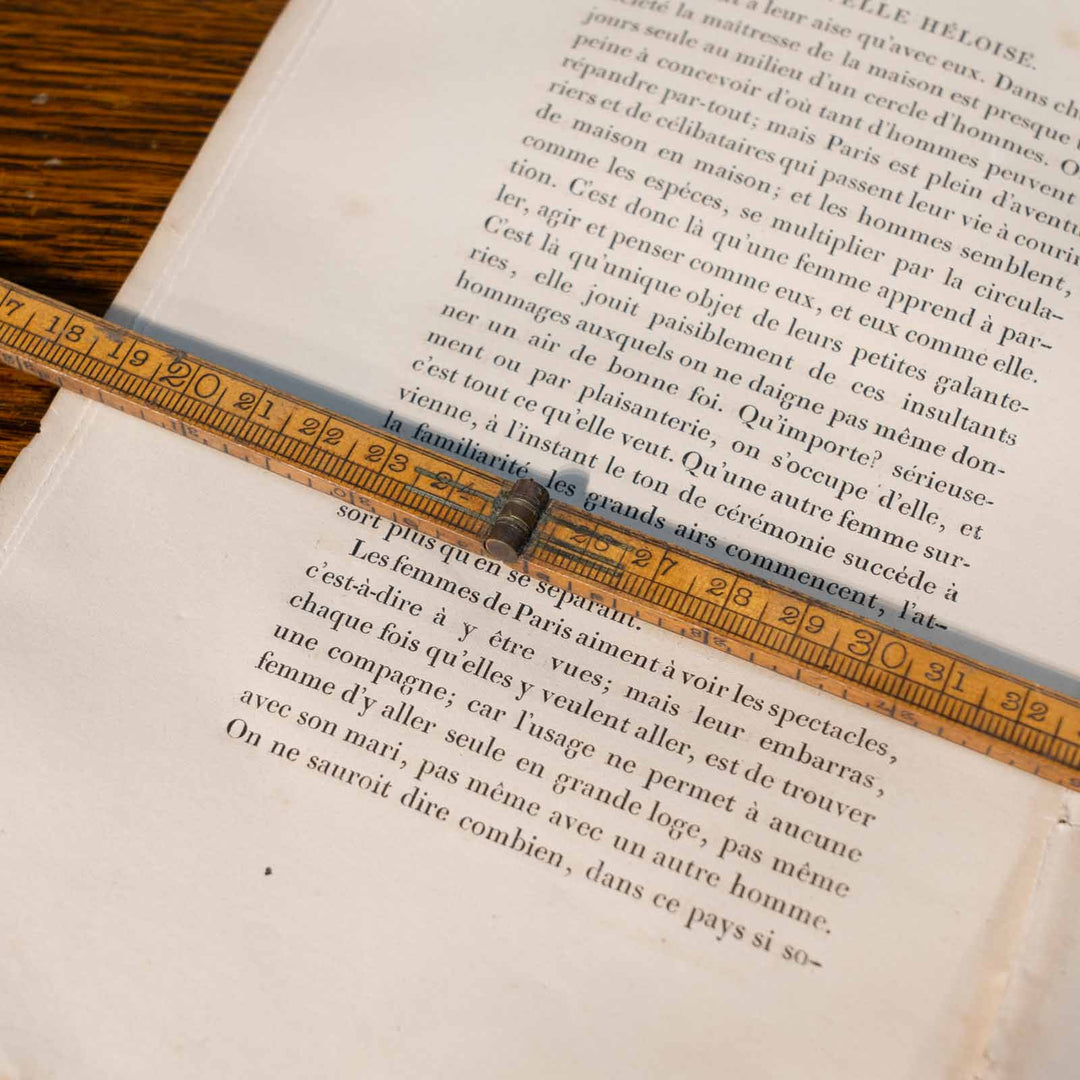 ELLE HÉLOISE.
à leur aise qu'avec eux. Dans
la maîtresse de la maison est presque
jours seule au milieu d'un cercle d'hommes.
peine à concevoir d'où tant d'hommes peuvent
répandre par-tout; mais Paris est plein d'aventu
riers et de célibataires qui passent leur vie à courir
de maison en maison; et les hommes semblent,
comme les espéces, se multiplier par la circula-
tion. C'est donc là qu'une femme apprend à par-
ler, agir et penser comme eux, et eux comme elle.
C'est là qu'unique objet de leurs petites galante-
ries, elle jouit paisiblement de ces insultants
hommages auxquels on ne daigne pas même don-
ner un air de bonne foi. Qu'importe? sérieuse-
ment ou par plaisanterie, on s'occupe d'elle, et
c'est tout ce qu'elle veut. Qu'une autre femme sur-
vienne, à l'instant le ton de cérémonie succéde à
la familiarité, les grands airs commencent, l'at-
7 18 19 20 21 22 23 24 26 27 28 29 30 31 32
sort plus qu'en se séparant.
Les femmes de Paris aiment à voir les spectacles,
c'est-à-dire à y être vues; mais leur embarras,
chaque fois qu'elles y veulent aller, est de trouver
une compagne; car l'usage ne permet à aucune
femme d'y aller seule en grande loge, pas même
avec son mari, pas même avec un autre homme.
On ne sauroit dire combien, dans ce pays si so-